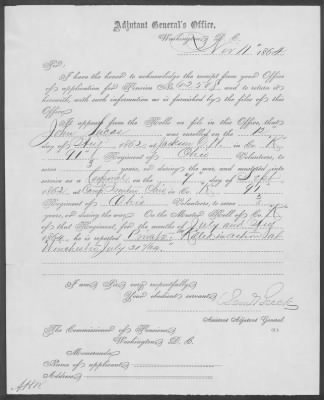 Adjutant General's Office,
Washington, D. C.
Nov 11th 1864
Sir:
I have the honor to acknowledge the receipt from your Office
of application for Pension No. and to return it
herewith, with such information as is furnished by the files of this
Office.
It appears from the Rolls on file in this Office, that
John was enrolled on the 12
day of Aug, 1862, at Jackson C.H. in Co. K,
91st Regiment of Ohio Volunteers, to
serve 3 years, or during the war, and mustered into
service as a Corporal on the 7 day of Sept,
1862, at Camp Ohio in Co. K, 91
Regiment of Ohio Volunteers, to serve 3
years, or during the war. On the Muster Roll of Co. K
of that Regiment, for the months of July and Aug,
1864, he is reported "Private: Killed in action at
Winchester July 20/64."
I am, Sir, very respectfully,
Your obedient servant,
Assistant Adjutant General.
The Commissioner of Pensions,
Washington, D. C.
Memoranda:
Name of applicant
Address